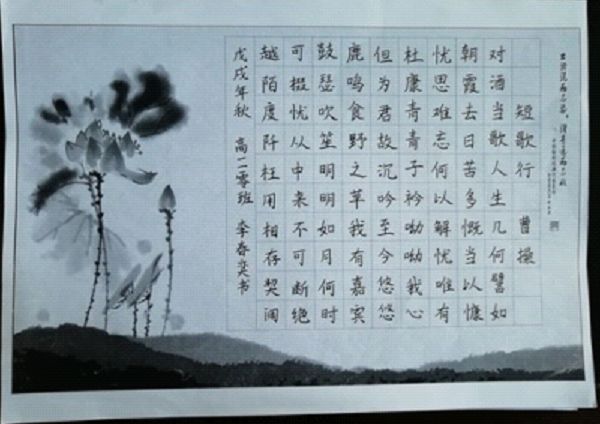 出淤泥而不染，濯清涟而不妖
短歌行 曹操
对酒当歌人生几何譬如
朝霞去日苦多慨当以慷
忧思难忘何以解忧唯有
杜康青青子衿呦呦我心
但为君故沉吟至今悠悠
鹿鸣食野之草我有嘉宾
鼓瑟吹笙明明如月何时
可掇忧从中来不可断绝
越陌度阡枉用相存契阔
戊戌年秋 高二零班 李春奕书